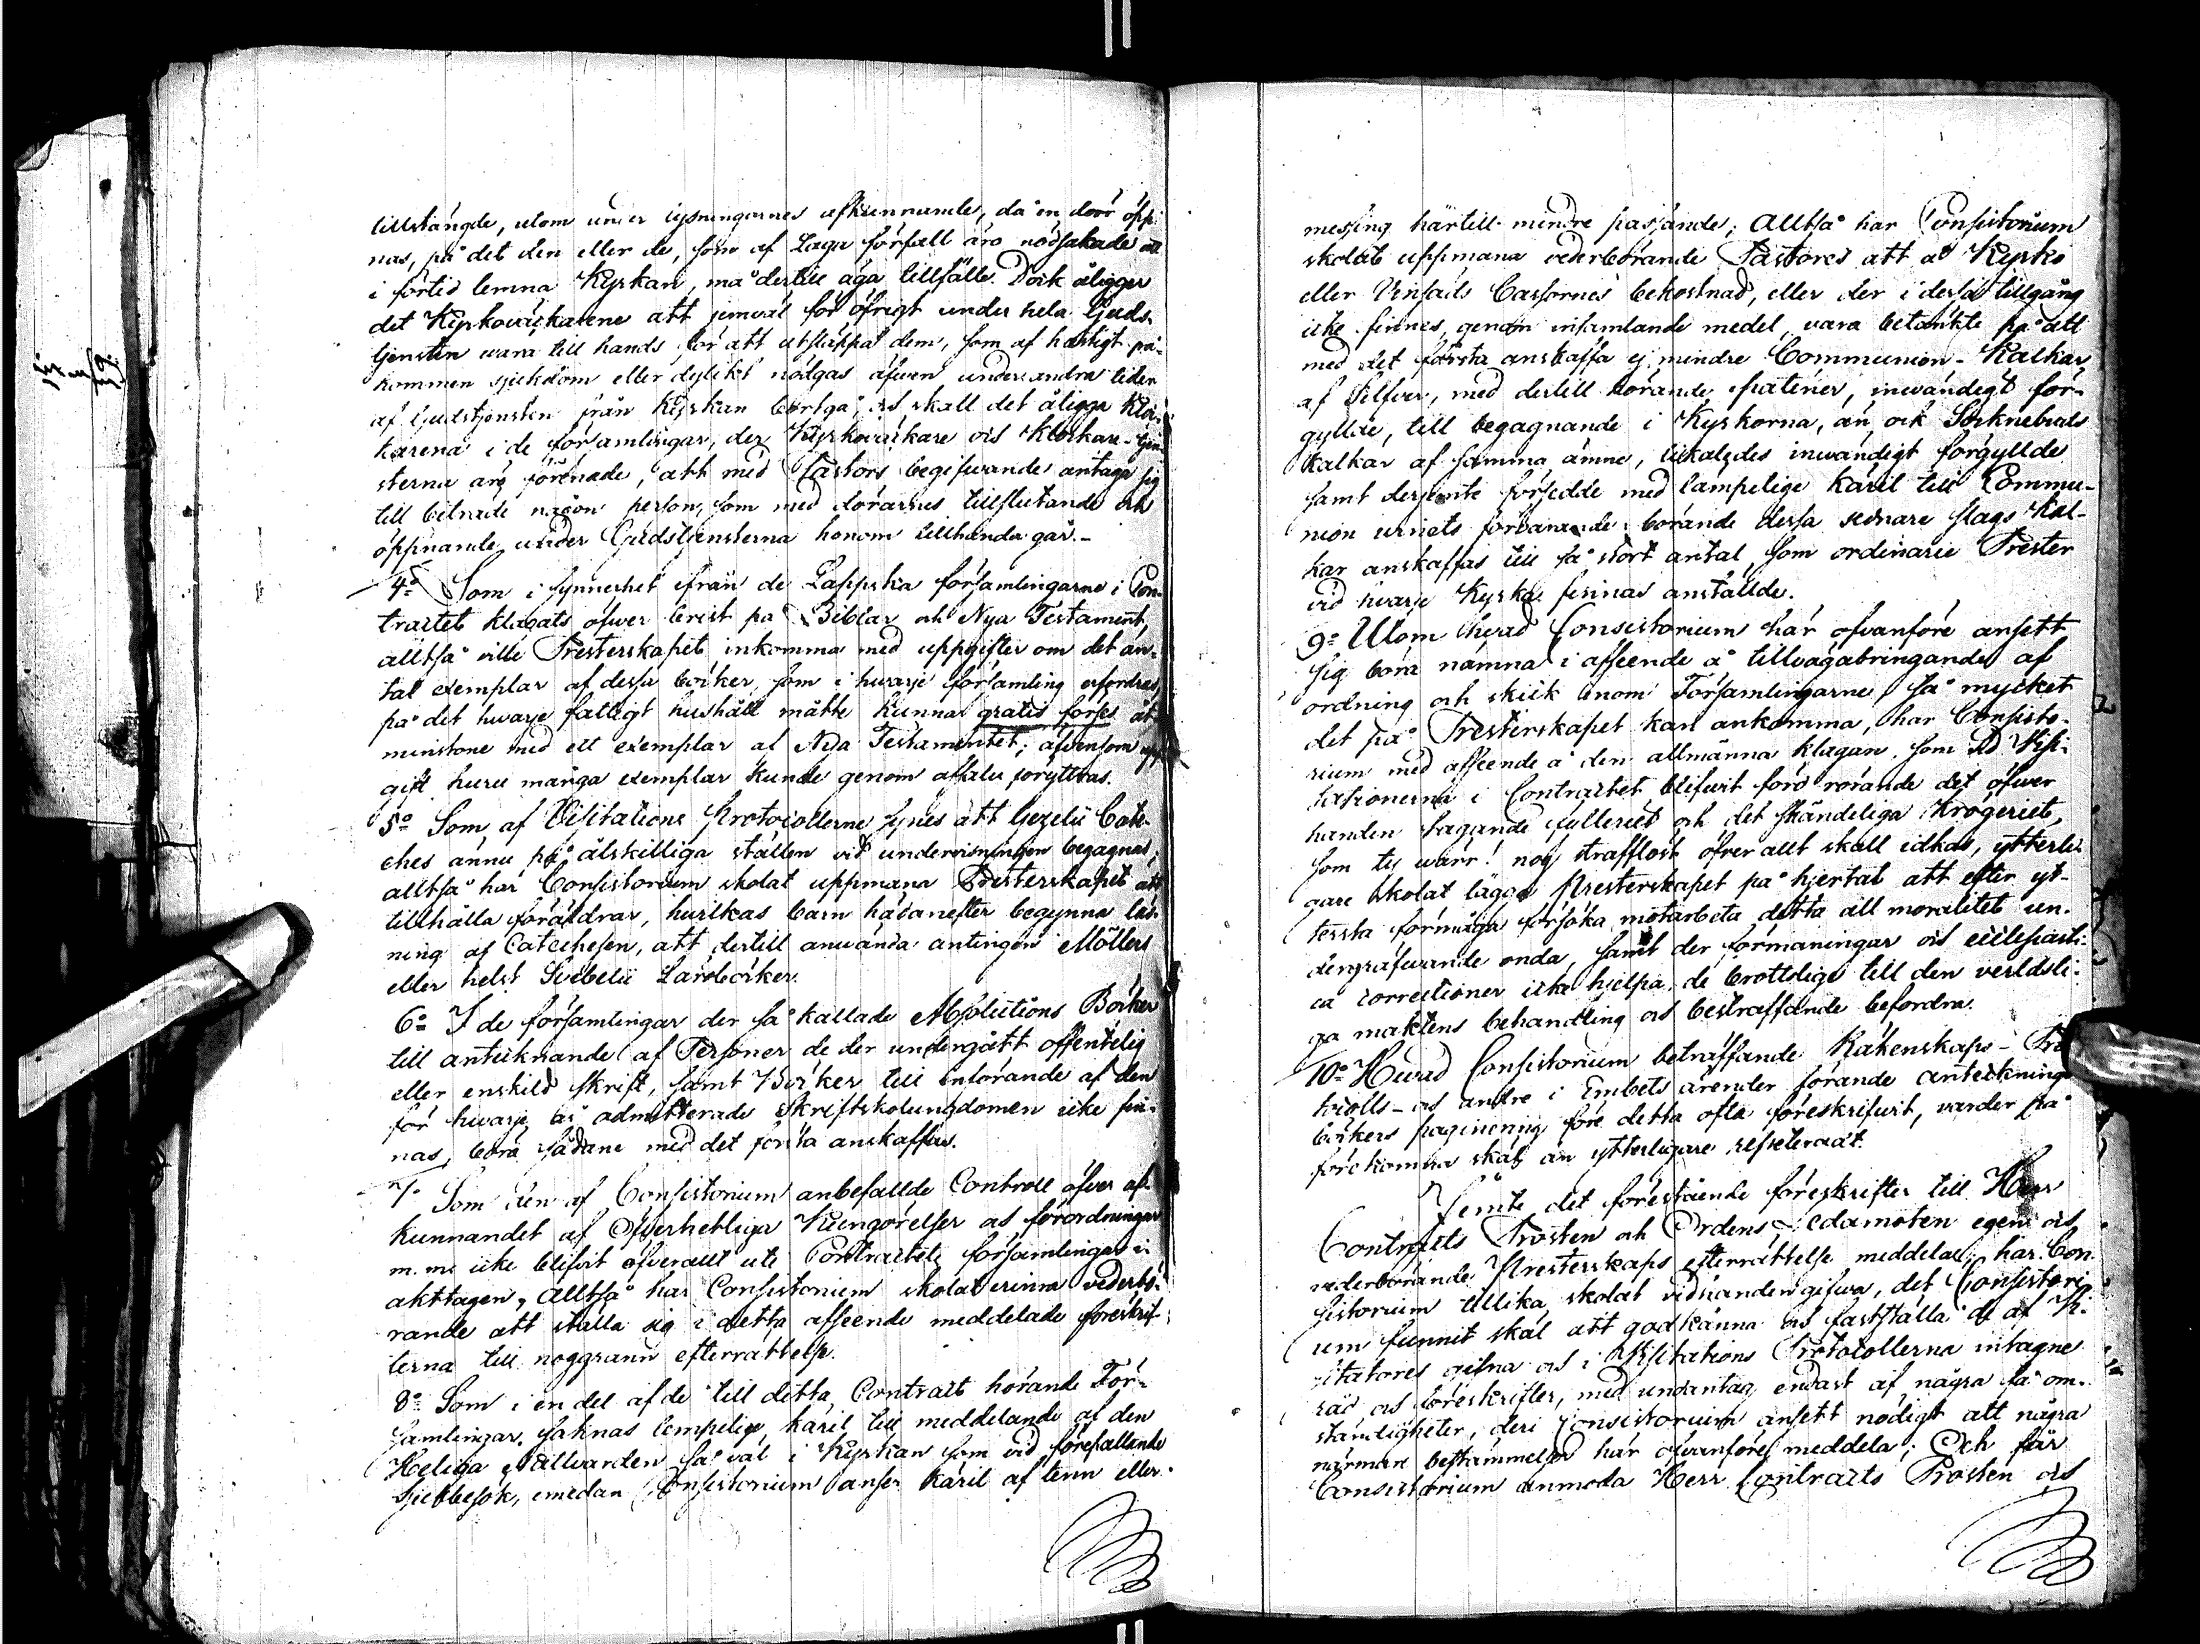 tillstängde, utom under lysningarnes afkunnande, då en dörr öpp-
nas, på det den eller de, som af Laga förfall äro nödsakade att
i förtid lemna Kyrkan, må dertill äga tillfälle. Dock åligger
det Kyrkoväcktarene att jemväl för öfrigt under hela Guds-
tjensten vara till hands för att utsläppa dem, som af hastigt på-
kommen sjukdom eller dylikt nödgas äfven under andra tider
af Gudstjensten från Kyrkan bortgå, och skall det åligga Kloc-
karena i de församlingar, der Kyrkoväcktare och Klockare-tjen-
sterna äro förenade, att med Pastors begifvande antaga sig
till biträde någon person, som med dörarnes tillslutande och
öppnande under Gudstjensterna honom tillhanda går.-
4:o Som i synnerhet ifrån de Lappska församlingarne i Con-
tractet klagats öfver brist på Biblar och Nya Testament,
alltså ville Presterskapet inkomma med uppgifter om det an-
tal exemplar af dessa böcker, som i hvarje församling erfordras
på det hvarje fattigt hushåll måtte kunna gratis förses åt-
minstone med ett exemplar af Nya Testamentet; äfvensom upp-
gift huru många exemplar kunde genom afsalu föryttras.
5:o Som af Visitations Protocollerne synes att Gezelii Cate-
ches ännu på åtskilliga ställen vid undervisningen begagnas,
alltså har Consistorium skolat uppmana Presterskapet att
tillhålla föräldrar, hvilkas barn hädanefter begynna läs-
ning af Catechesen, att dertill använda antingen Möllers
eller helst Svebelii Läroböcker.
6:o I de församlingar der så kallade Absolutions Böcker
till antecknande af Personer de der undergått offentelig
eller enskild skrift, samt Böcker till införande af den
för hvarje år admitterade Skriftskolungdomen icke fin-
nas, böra sådane med det första anskaffas.
7:o Som den af Consistorium anbefallde Controll öfver af-
kunnandet af Öfverhetliga Kungörelser och förordningar
m. m. icke blifvit öfverallt uti Contractets församlingar i
akttagen, Alltså har Consistorium skolat erinra vederbö-
rande att ställa sig i detta afseende meddelade föreskrif-
terna till noggrann efterrättelse.
8:o Som i en del af de till detta Contract hörande För-
samlingar saknas lämpelige käril till meddelande af den
Heliga Nattvarden så väl i Kyrkan som vid förefallande
Sjukbesök, emedan Consistorium anser käril af tenn eller
messing härtill mindre passande; Alltså har Consistorium
skolat uppmana vederbörande Pastores att å Kyrko
eller Vinsäds Cassornes bekostnad, eller der i dessa tillgång
icke finnes, genom insamlande medel, vara betänkte på att
med det första anskaffa ej mindre Communion-Kalkar
af Silfver, med dertill hörande patener, invändigt för-
gyllde, till begagnande i Kyrkorna, än ock Socknebuds
Kalkar af samma ämne, likaledes invändigt förgyllde
samt derjemte försedde med lämpelige käril till Commu-
nion vinets förvarande, börande dessa sednare slags Kal-
kar anskaffas till så stort antal, som ordinarie Prester
vid hvarje Kyrka finnas anställde.
9:o Utom hvad Consistorium här ofvanföre ansett
sig böra nämna i afseende å tillvägabringande af
ordning och skick inom Församlingarne så mycket
det på Presterskapet kan ankomma, har Consisto-
rium med afseende å den allmänna klagan, som vid Visi-
tationerna i Contractet blifvit förd rörande det öfver
handen tagande fylleriet och det skändeliga krögeriet,
som ty värr! nog straffløst öfver allt skall idkas, ytterli-
gare skolat lägga Presterskapet på hjertat att efter yt-
tersta förmåga försöka motarbeta detta all moralitet un-
dergräfvande onda, samt der förmaningar och ecclesiasti-
ca correctioner icke hjelpa, de brottslige till den verldsli-
ga maktens behandling och bestraffande befordra.
10:o Hvad Consistorium beträffande Räkenskaps- Pro-
tocolls- och andre i Embets ärender förande anteckning
böckers paginering före detta ofta föreskrifvit, varder på
förekomna skäl än ytterligare refsterat.
Jemte det förestående föreskrifter till Herr
Contracts Prosten och Ordens Ledamoten egen och
vederbörande Presterskaps efterrättelse meddelas; har Con-
sistorium tillika skolat vidhanden gifva, det Consistori-
um funnit skäl att godkänna och fastställa de af Vi-
sitatores gifna och i Visitations Protocollerna intagne
råd och föreskrifter, med undantag endast af några få om-
ständigheter, deri Consistorium ansett nödigt att några
närmare bestämmelser här ofvanföre meddela; Och får
Consistorium anmoda Herr Contracts Prosten och